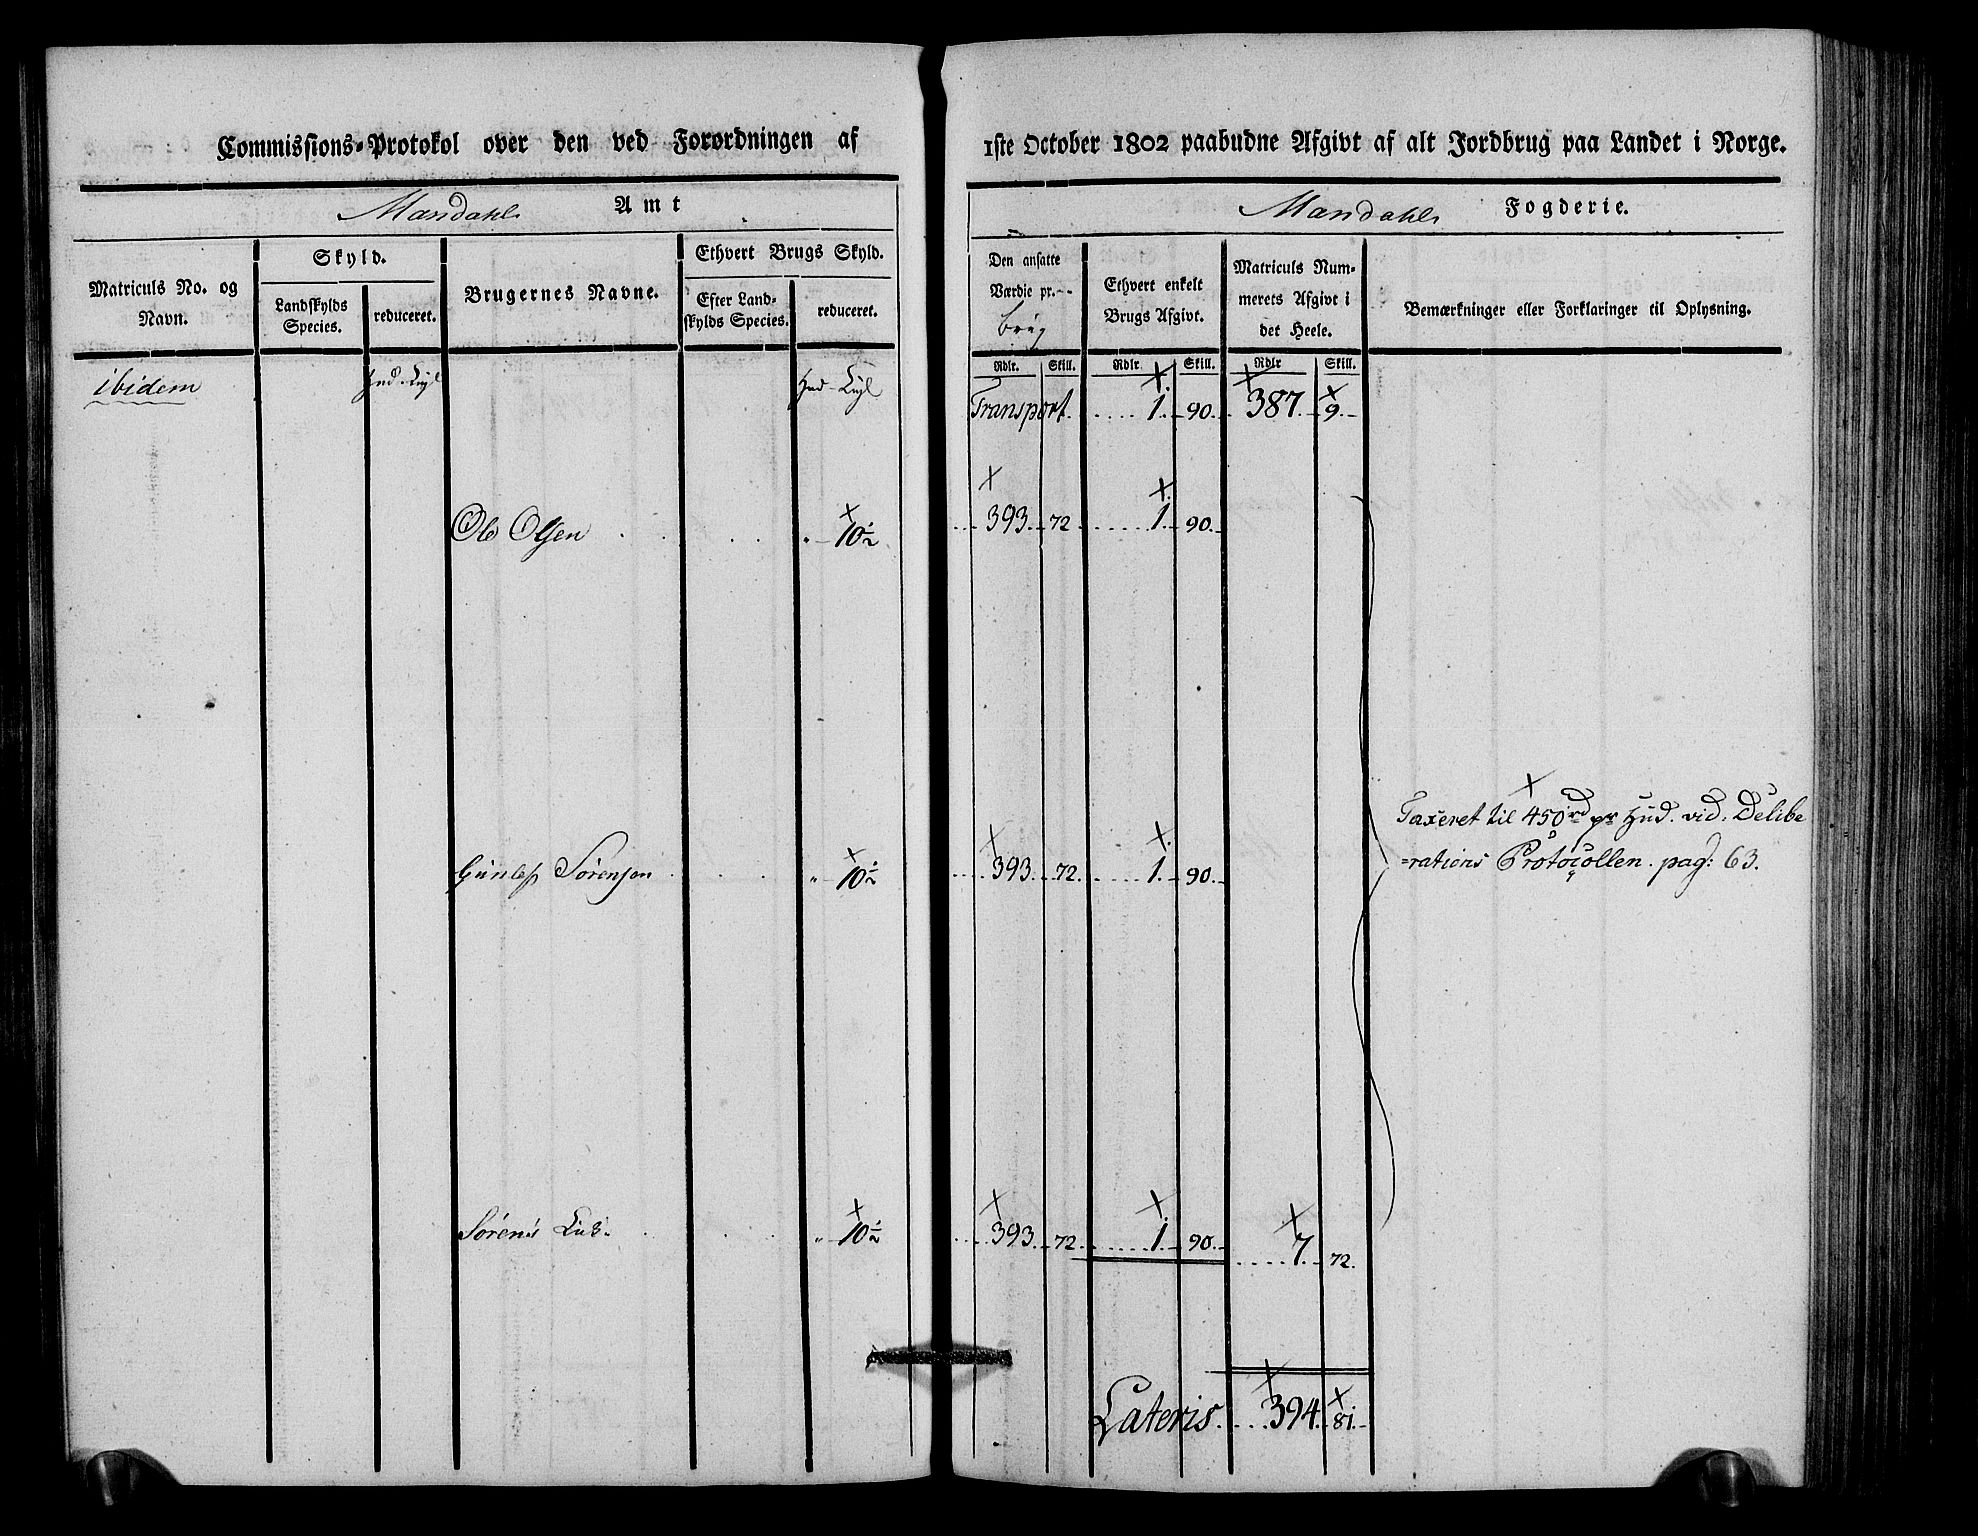 Commissions-Protokol over den ved Forordningen af 1ste October 1802 paabudne Afgivt af alt Jordbrug paa Landet i Norge.
Mandahls Amt
Mandahls Fogderie.
Matriculs No. og Navn.
Skyld.
Landskylds Species.
reduceret.
Brugernes Navne.
Ethvert Brugs Skyld.
Efter Landskylds Species.
reduceret.
Den ansatte Værdie pr. brug
Ethvert enkelt Brugs Afgivt.
Matriculs Nummerets Afgivt i det Heele.
Bemærkninger eller Forklaringer til Oplysning.
Rdlr. Skill. Rdlr Skill. Rdlr Skill.
ibidem Hud Hud Transport 1 90 387 9
Ole Olsen " 10½ 393 72 1 90
Taxeret til 450 rd pr Hud. vid. Delibe
=rations Protocollen. pag: 63.
Gunlef Sørensen " 10½ 393 72 1 90
Sørens " 10½ 393 72 1 90 7 72
Lateris 394 81